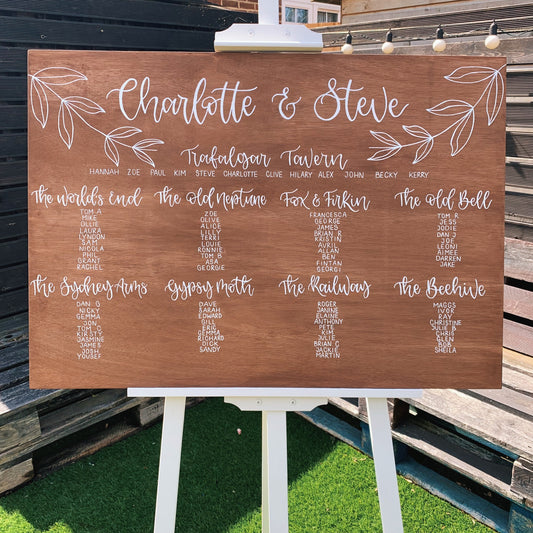 Charlotte & Steve
Trafalgar Tavern
HANNAH ZOE PAUL KIM STEVE CHARLOTTE CLIVE HILARY ALEX JOHN BECKY KERRY
The World's End
TOM A
MIKE
OLLIE
LAURA
LYNDON
SAM
NICOLA
PHIL
GRANT
RACHEL
The Old Neptune
ZOE
OLIVE
ALICE
LILLY
TERRI
LOUIE
RONNIE
TOM B
ASA
GEORGIE
Fox & Firkin
FRANCESCA
GEORGE
JAMES
BRIAN R
KRISTIN
AVRIL
ALLAN
BEN
FINTAN
GEORGI
The Old Bell
TOM R
JESS
JODIE
DAN J
JOE
LEONI
AIMEE
DARREN
JAKE
The Sydney Arms
DAN G
NICKY
GEMMA
JON
TOM C
KIRSTY
JASMINE
JAMES
JOSH
YOUSEF
Gypsy Moth
DAVE
SARAH
EDWARD
GILL
ERIC
GEMMA
RICHARD
DICK
SANDY
The Railway
ROGER
JANINE
ELAINE
ANTHONY
PETE
KIM
JULIE
BRIAN C
JACKIE
MARTIN
The Beehive
MAGGS
IVOR
RAY
CHRISTINE
JULIE B
CHRIS
GLEN
BOB
SHEILA